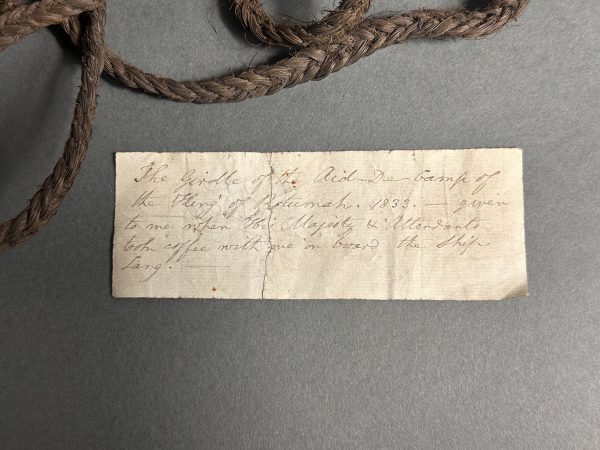 The Girdle of the Aid-De-Camp of
the King of Rotumah. 1833. — given
to me when His Majesty & Attendants
took coffee with me on board the Ship
Lang. —